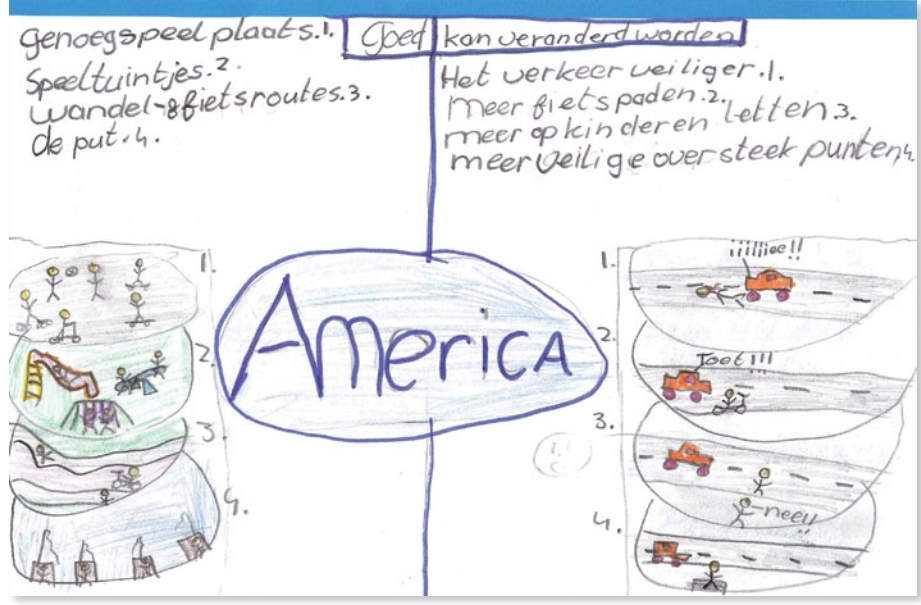 genoeg speel plaats.1.
Speeltuintjes.2.
wandel-&fietsroutes.3.
de put.4.
Goed
kan veranderd worden
Het verkeer veiliger.1.
meer fietspaden.2.
meer op kinderen letten 3.
meer veilige oversteek punten,4.
1.
2.
3.
4.
America
1.
iiiiiiee!!
2.
Toet!!!
3.
nee!!
4.